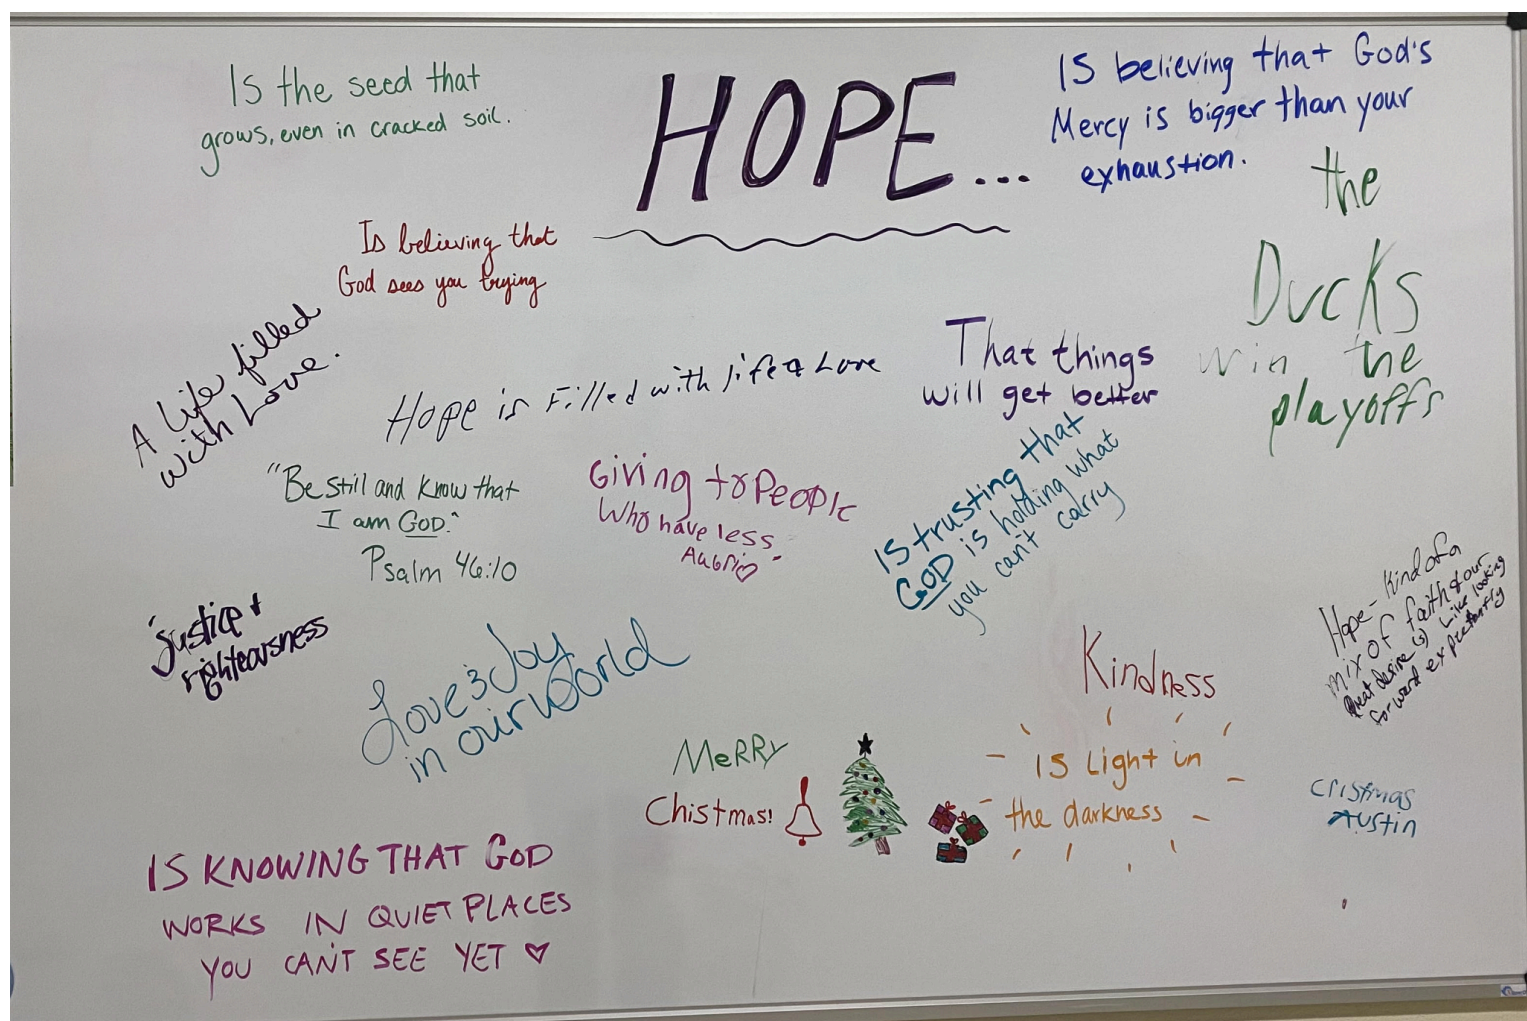 HOPE...
Is the seed that
grows, even in cracked soil.
IS believing that God's
Mercy is bigger than your
exhaustion.
the
Ducks
win the
playoffs
Is believing that
God sees you trying
A Life filled
with Love.
Hope is Filled with life & Love
That things
will get better
"Be still and know that
I am GOD."
Psalm 46:10
Giving to People
Who have less
Aubri♡
IS trusting that
GOD is holding what
you can't carry
Justice +
righteousness
Love & Joy
in our world
Hope - Kind of a
mix of faith & our
great desire(s) Like looking
forward expectantly
Kindness
MeRRy
Chistmas!
IS Light in
the darkness
cristmas
Austin
IS KNOWING THAT GOD
WORKS IN QUIET PLACES
YOU CAN'T SEE YET ♡